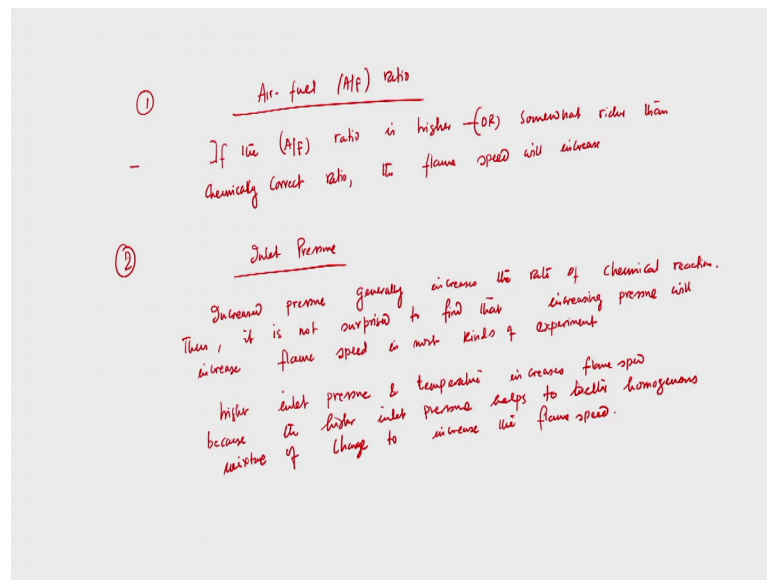 ① Air-fuel (A/F) ratio
- If the (A/F) ratio is higher (OR) somewhat richer than
chemically correct ratio, the flame speed will increase
② Inlet Pressure
Increased pressure generally increases the rate of chemical reaction.
Thus, it is not surprised to find that increasing pressure will
increase flame speed in most kinds of experiment
higher inlet pressure & temperature increases flame speed
because the higher inlet pressure helps to better homogenous
mixture of charge to increase the flame speed.